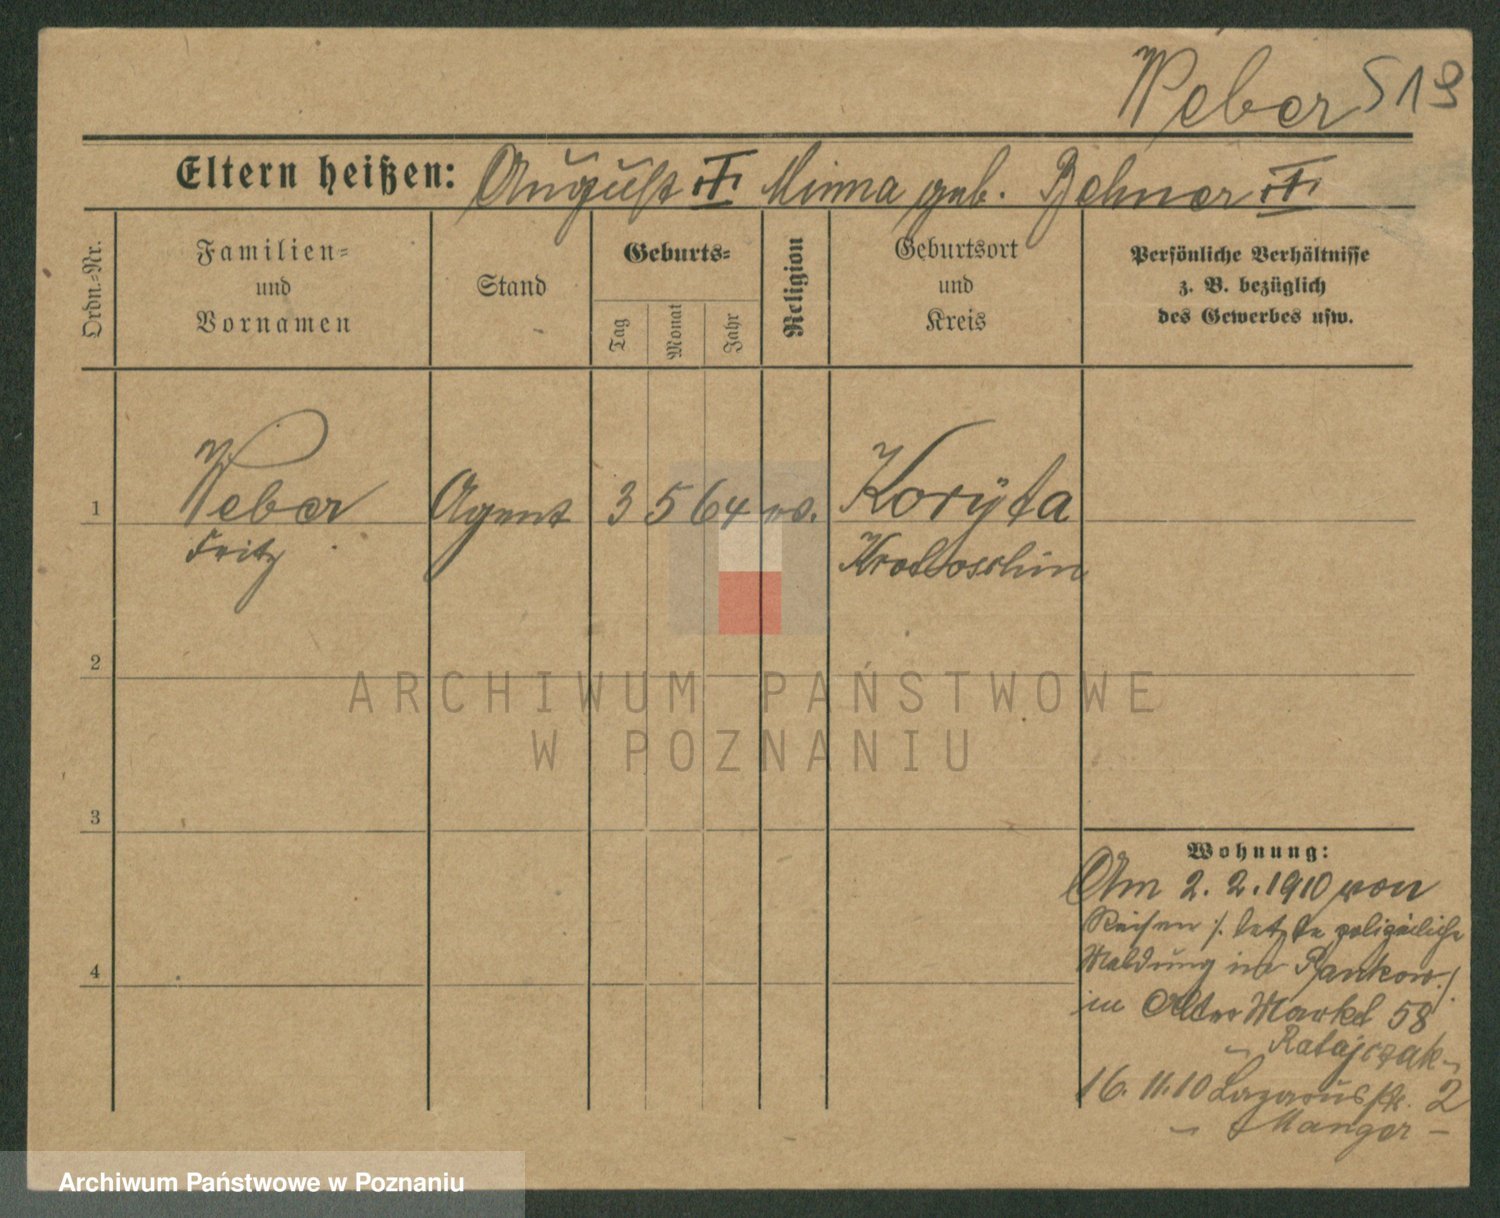 Weber 519
Eltern heißen: August Minna geb.
Ordn.=Nr.
Familien=
und
Vornamen
Stand
Geburts=
Tag
Monat
Jahr
Religion
Geburtsort
und
Kreis
Persönliche Verhältnisse
z. B. bezüglich
des Gewerbes usw.
1 Weber Agent 3 5 64 ev. Koryta
Fritz Krotoschin
2
ARCHIWUM PAŃSTWOWE
W POZNANIU
3
Wohnung:
Am 2. 2. 1910 von
Reisen /. letzte polizeiliche
4
Meldung in Pankow ./
in Alter Markt 58
- Ratajczak -
16. 11. 10 Lazarusstr. 2
- Manger -
Archiwum Państwowe w Poznaniu